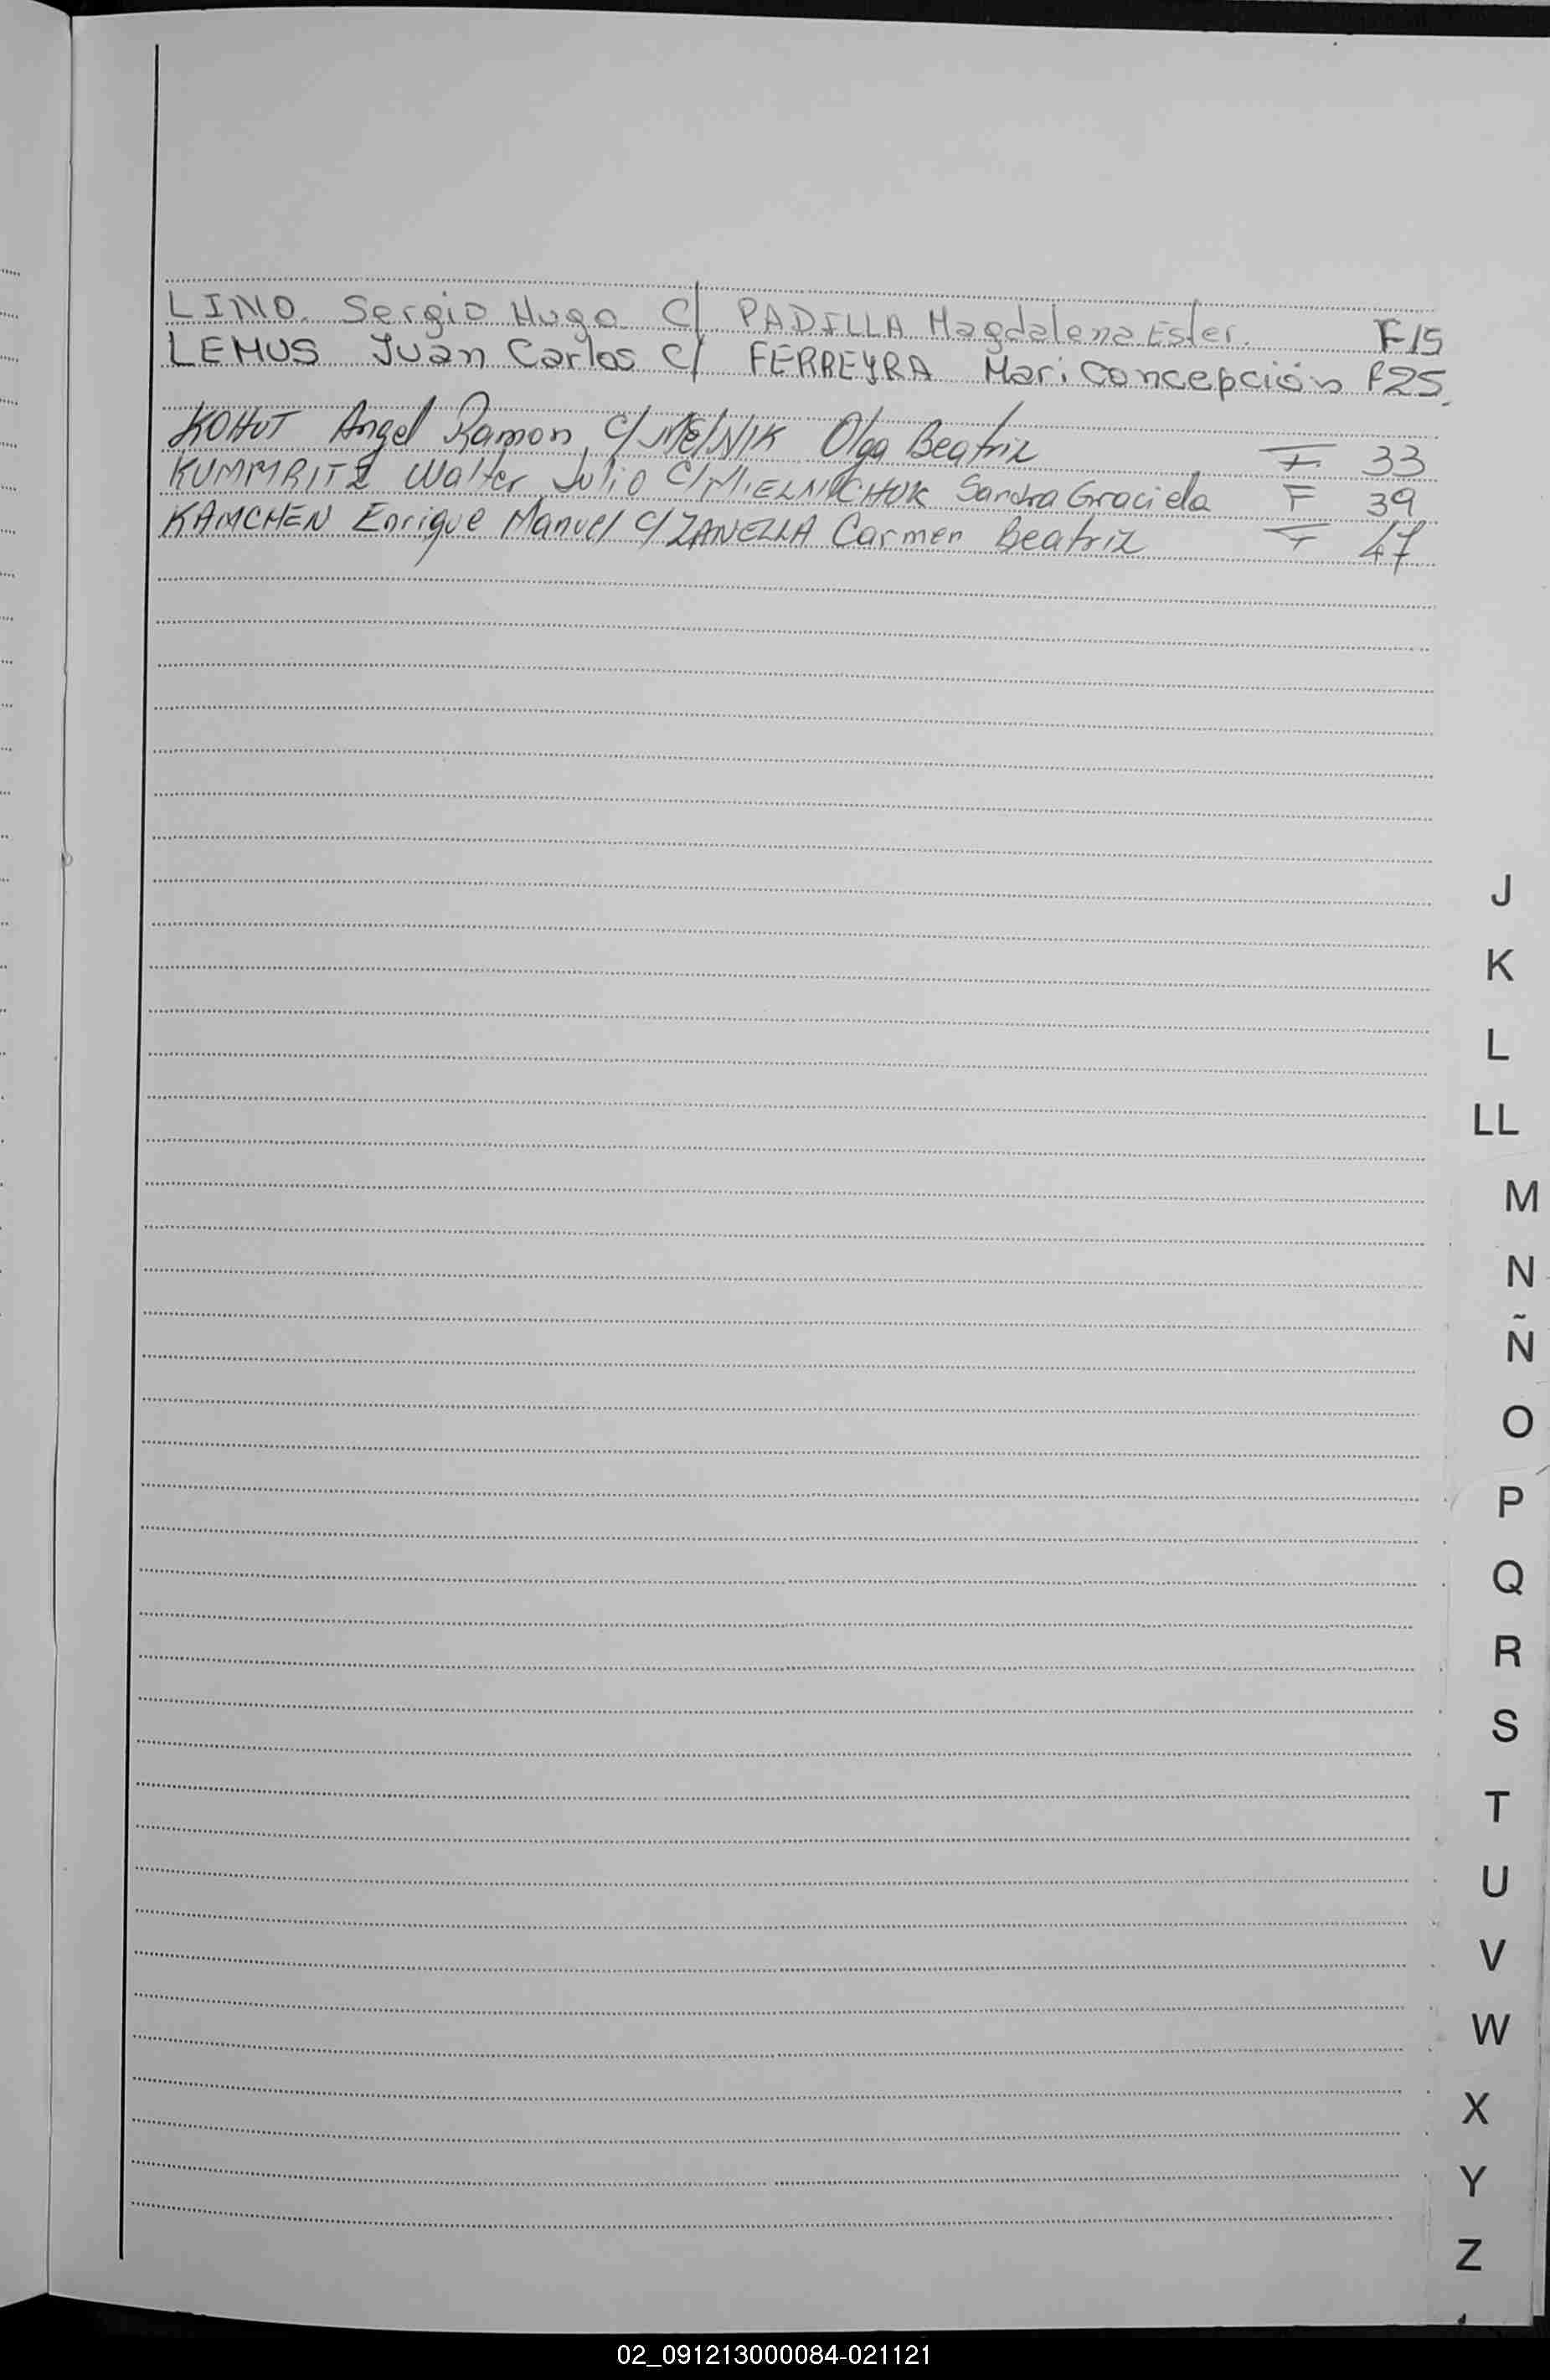 LINO. Sergio Hugo C/ PADILLA Magdalena Ester. F15
LEMUS Juan Carlos C/ FERREYRA Mari Concepción F25.
KOHUT Angel Ramon C/ MELNIK Olga Beatriz F. 33
KUMMRITZ Walter Julio C/ MIELNICHUK Sandra Graciela F 39
KAMCHEN Enrique Manuel C/ ZANELLA Carmen Beatriz F 47
J
K
L
LL
M
N
Ñ
O
P
Q
R
S
T
U
V
W
X
Y
Z
02_091213000084-021121